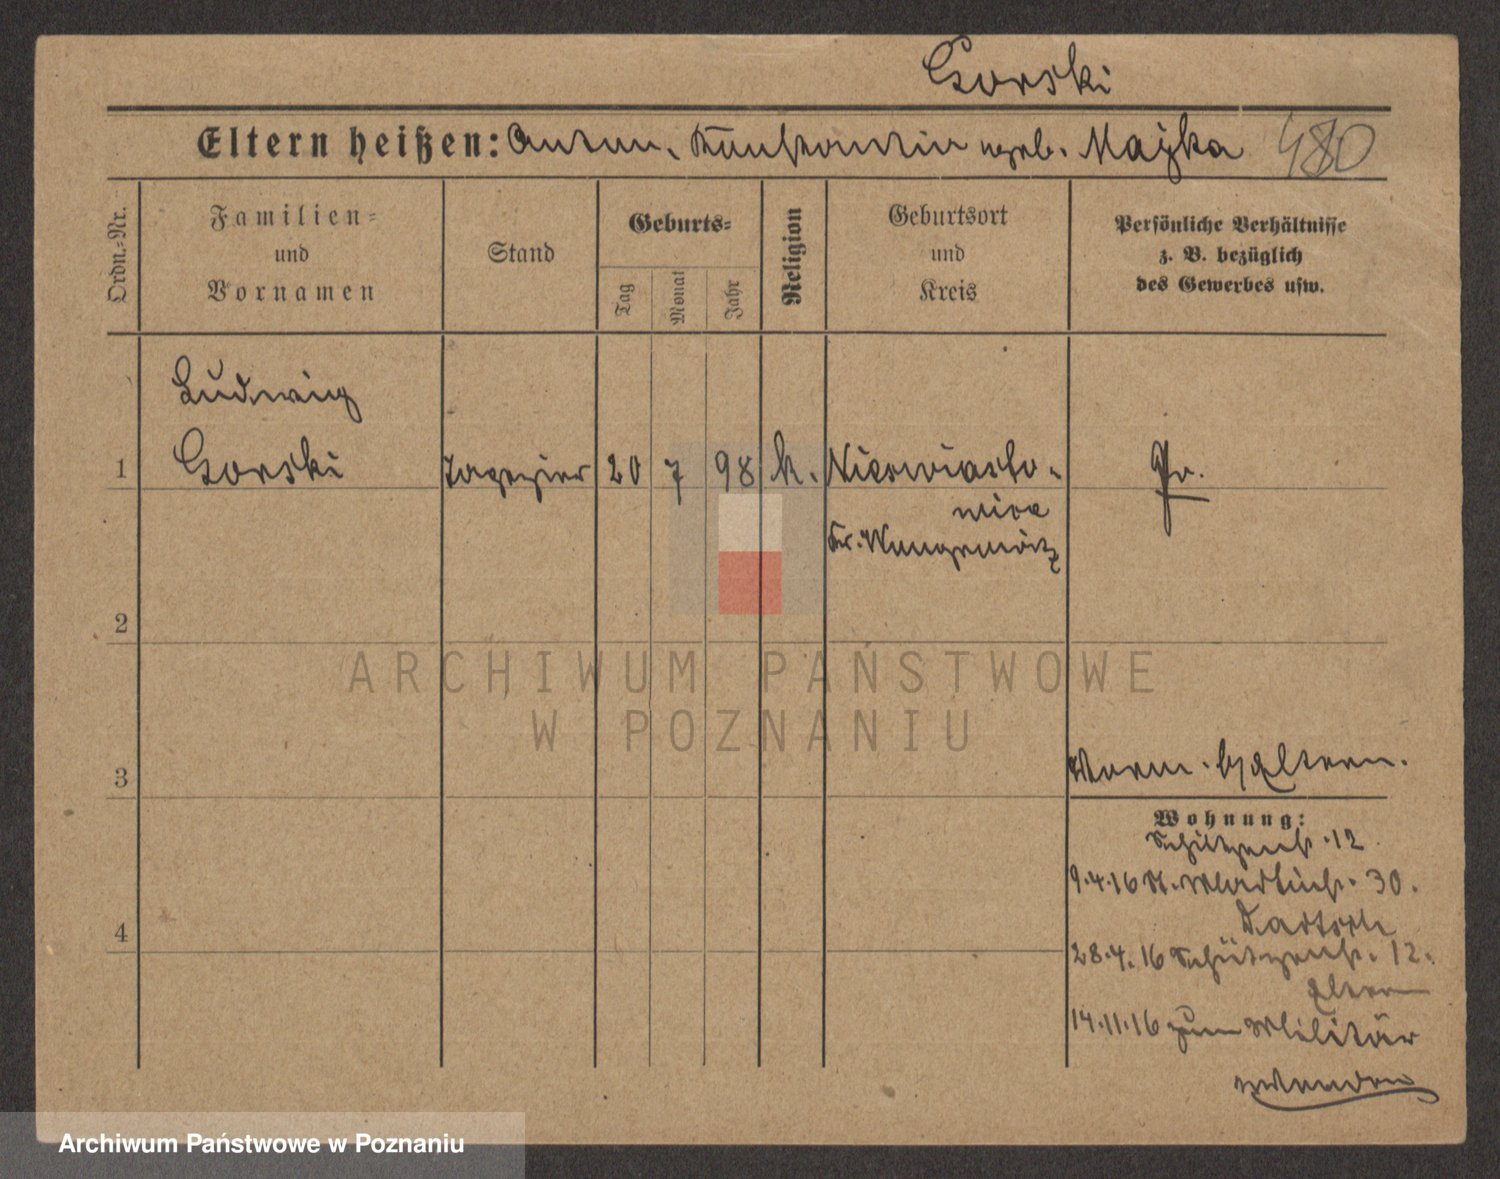 Gorski
Eltern heißen: Anton, Konstantia geb. Mayka 480
Ordn.-Nr.
Familien- und Vornamen
Stand
Geburts-
Tag
Monat
Jahr
Religion
Geburtsort und Kreis
Persönliche Verhältnisse
z. B. bezüglich
des Gewerbes usw.
Ludwig
1 Gorski Tapezier 20 7 98 k. Pr.
Kr. Wongrowitz
2
ARCHIWUM PAŃSTWOWE
W POZNANIU
3
Eltern.
Wohnung:
Schützenstr. 12
9.4.16 St. Martinstr. 30.
4
28.4.16 Schützenstr. 12.
Eltern
14.11.16 zum Militär
wenden
Archiwum Państwowe w Poznaniu